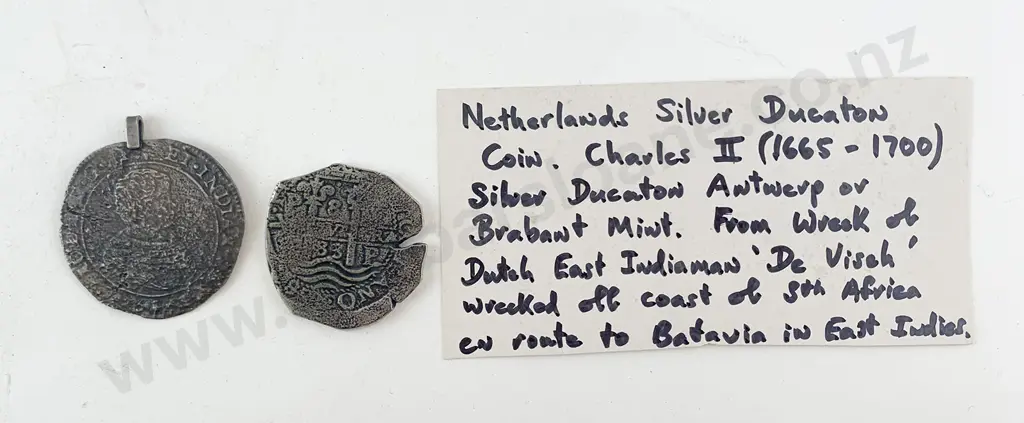 Netherlands Silver Ducaton
Coin. Charles II (1665 - 1700)
Silver Ducaton Antwerp or
Brabant Mint. From Wreck of
Dutch East Indiaman 'De Visch'
wrecked off coast of sth Africa
en route to Batavia in East Indies.
ET·INDI
P 8